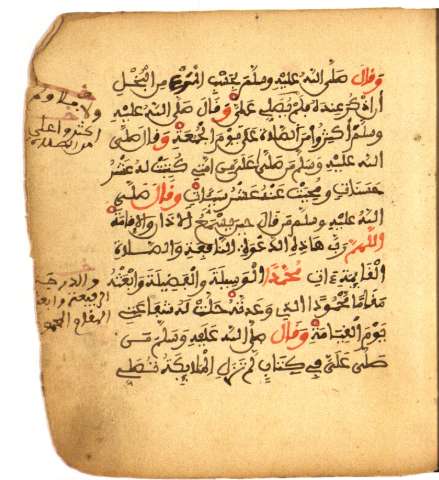 وقال صلى الله عليه وسلم بحسب المرء من البخل
ان اذكر عنده فلم يصلي علي وقال صلى الله عليه
وسلم اكثروا من الصلاة علي يوم الجمعة وقال صلى
الله عليه وسلم من صلى علي من امتي كتبت له عشر
حسنات ومحيت عنه عشر سيئات وقال صلى
الله عليه وسلم من قال حين يسمع الاذان والاقامة
اللهم رب هاذه الدعوة النافعة والصلاة
القايمة ات محمدا الوسيلة والفضيلة وابعثه
مقاما محمودا الذي وعدته حلت له شفاعتي
يوم القيامة وقال صلى الله عليه وسلم من
صلى علي في كتاب لم تزل الملايكة تصلي
اكثروا علي
من الصلاة
والدرجة
الرفيعة وابعثه
المقام المحمود